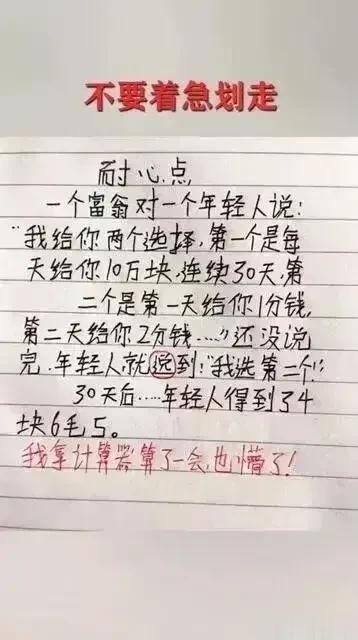 不要着急划走
耐心点
一个富翁对一个年轻人说:
"我给你两个选择,第一个是每
天给你10万块,连续30天,第
二个是第一天给你1分钱,
第二天给你2分钱……"还没说
完.年轻人就说到:"我选第二个!"
30天后……年轻人得到了4
块6毛5。
我拿计算器算了一会,也懵了!